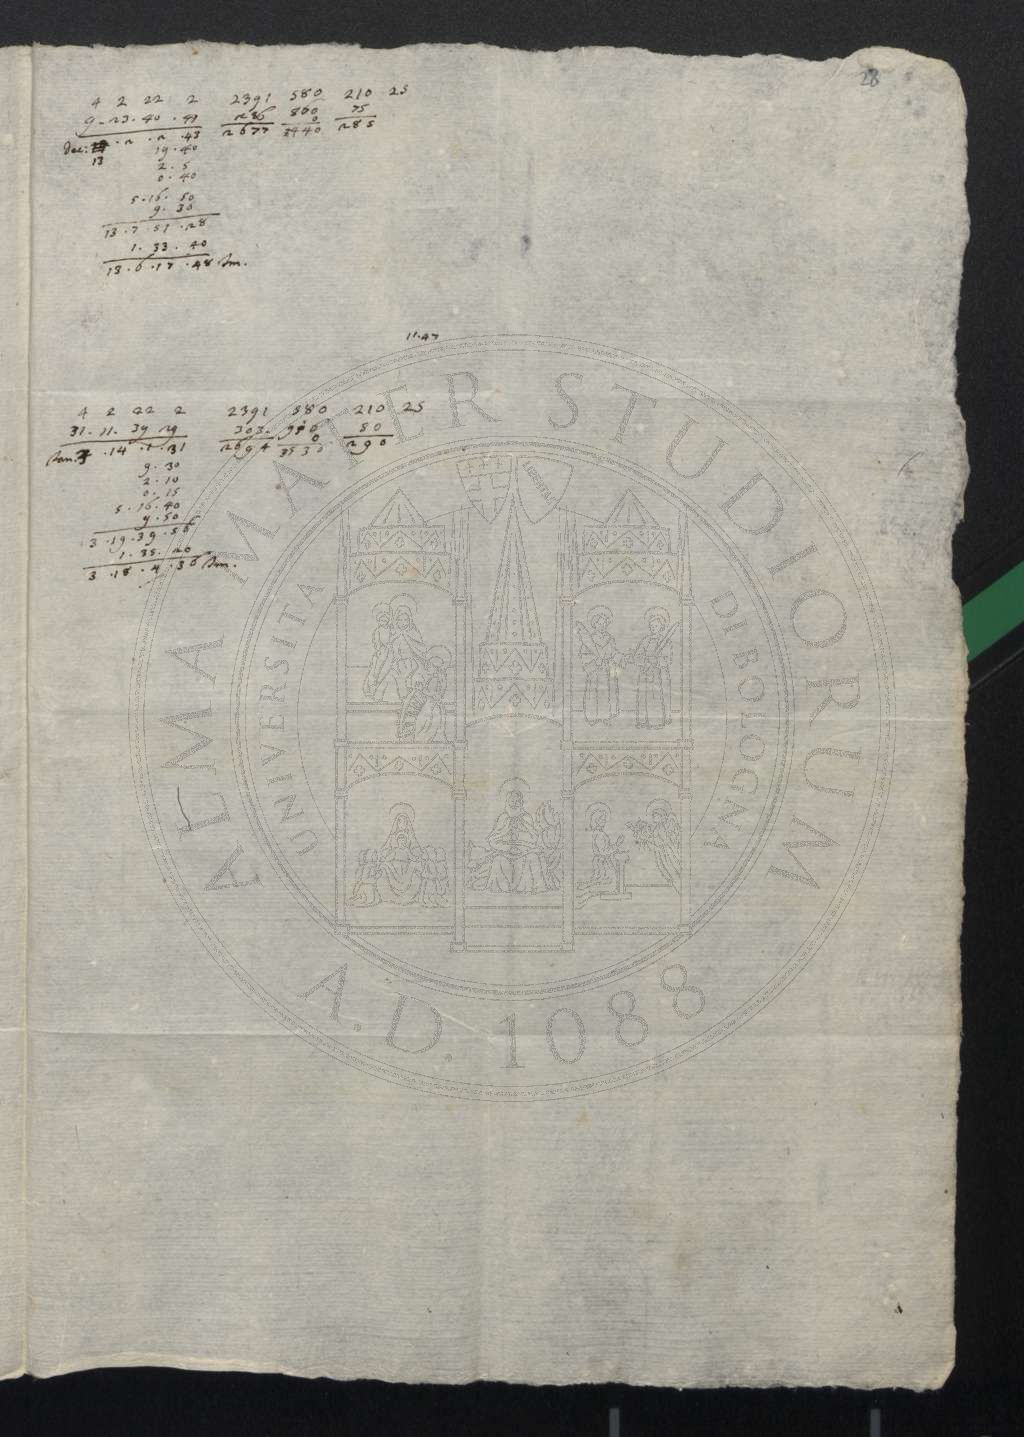 28
4 2 22 2 2391 580 210 25
9. 23. 40. 41 286 860 75
Dec: . 2 . 2 . 43 2677 0 285
13 19. 40 3440
2. 5
0. 40
5. 16. 50
9. 30
13. 7. 51. 28
1. 33. 40
13. 6. 17. 48 Sm.
11. 47
4 2 22 2 2391 580 210 25
31. 11. 39 29 303 950 80
Jan. 3 . 14 . 1 . 31 2694 0 290
9. 30 3530
2. 10
0. 15
5. 16. 40
9. 50
3. 19. 39. 56
1. 35. 20
3. 18. 4. 36 Sm.
ALMA MATER STUDIORUM
A.D. 1088
UNIVERSITA DI BOLOGNA
LIBERTAS